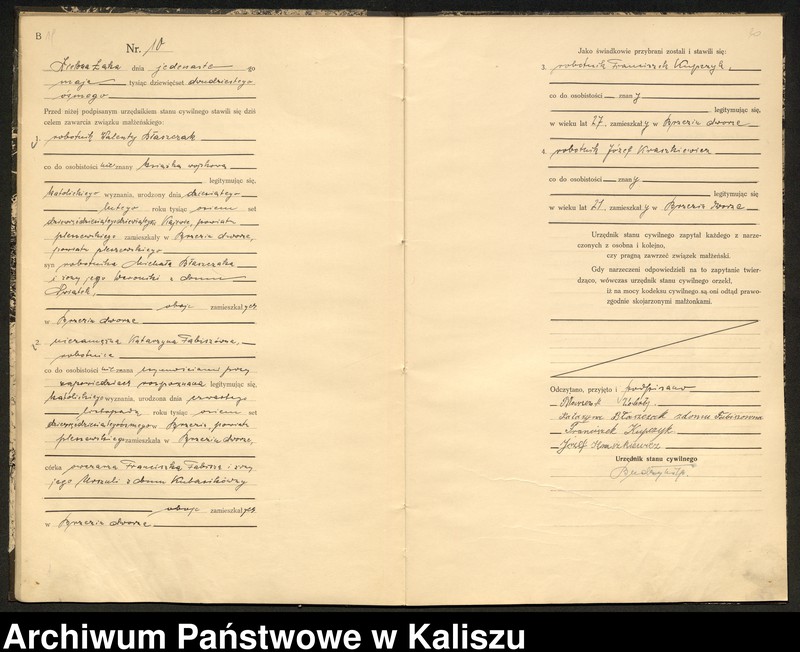 B
Nr. 10
Zielona Łąka dnia jedenasto go
maja tysiąc dziewięćset dwudziestego
ósmego
Przed niżej podpisanym urzędnikiem stanu cywilnego stawili się dziś
celem zawarcia związku małżeńskiego:
1. robotnik Walenty Błaszczak
co do osobistości nieznany książką wojskową
legitymujący się,
katolickiego wyznania, urodzony dnia dziewiątego
lutego roku tysiąc osiem set
dziewięćdziesiątego dziewiątego powiatu
pleszewskiego zamieszkały w dworze,
powiatu pleszewskiego
syn robotnika Michała Błaszczaka
i żony jego Weroniki z domu
oboje zamieszkał ych
w dworze
2. niezamężna Katarzyna Fabiszówna,
robotnica
co do osobistości nieznana przy
zapowiedziach rozpoznana legitymująca się,
katolickiego wyznania, urodzona dnia czwartego
listopada roku tysiąc osiem set
powiatu
pleszewskiego zamieszkała w dworze,
córka Franciszka Fabisza i żony
jego z domu
oboje zamieszkał ych
w dworze
Jako świadkowie przybrani zostali i stawili się:
3. robotnik Franciszek Kupczyk
co do osobistości znany
legitymując się,
w wieku lat 27, zamieszkały w dworze
4. robotnik Józef Kwaszkiewicz
co do osobistości znany
legitymując się
w wieku lat 21, zamieszkały w dworze
Urzędnik stanu cywilnego zapytał każdego z narze-
czonych z osobna i kolejno,
czy pragną zawrzeć związek małżeński.
Gdy narzeczeni odpowiedzieli na to zapytanie twier-
dząco, wówczas urzędnik stanu cywilnego orzekł,
iż na mocy kodeksu cywilnego są oni odtąd prawo-
zgodnie skojarzonymi małżonkami.
Odczytano, przyjęto i podpisano
Błaszczak
Błaszczak z domu
Franciszek Kupczyk
Józef Kwaszkiewicz
Urzędnik stanu cywilnego
Archiwum Państwowe w Kaliszu